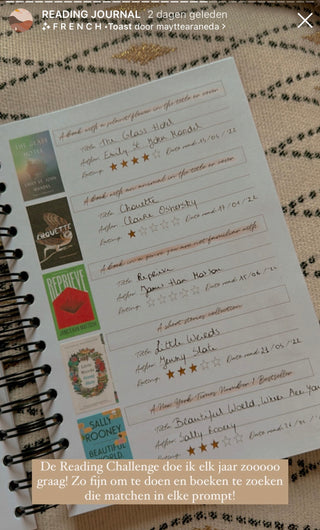 READING JOURNAL 2 dagen geleden
FRENCH •Toast door mayttearaneda >
A book with a plant/flower in the title or cover
Title: The Glass Hotel
Author: Emily St. John Mandel
Rating: Date read:
THE GLASS
HOTEL
EMILY ST. JOHN
MANDEL
A book with an animal in the title or cover
Title: Chouette
Author: Claire Oshetsky
Rating: Date read:
CHOUETTE
A book in a genre you are not familiar with
Title: Reprieve
Author: James Han Mattson
Rating: Date read:
REPRIEVE
JAMES HAN MATTSON
A short stories collection
Title: Little Weirds
Author: Jenny Slate
Rating: Date read:
A New York Times Number 1 Bestseller
Title: Beautiful World, Where Are You
Author: Sally Rooney
Rating: Date read:
SALLY
ROONEY
BEAUTIFUL
WORLD
De Reading Challenge doe ik elk jaar zooooo
graag! Zo fijn om te doen en boeken te zoeken
die matchen in elke prompt!